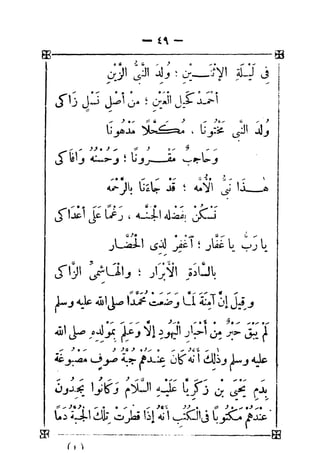 — ٤٩ —
فى لَيْلَةِ الإِثْنَــيْنِ ؛ وُلِدَ النَّبِىُّ الزَّيْنِ
أَحْمَدْ كَحِيلِ الْعَيْنِ ؛ مِنْ أَصْلِ نَسْلٍ زَاكِى
وُلِدَ النَّبِى مَخْتُونَا ، مُكَحَّلاً مَدْهُونَا
وَحَاجِبٌ مَقْــرُونَا ؛ وَحُسْنُهُ وَافَاكِى
هٰــذَا نَبِىُّ الأُمَّه ؛ قَدْ جَاءَنَا بِالرَّحْمَه
نَسْكُنْ بِفَضْلِهِ الْجَنَّــه ، رَغْمًا عَلَى أَعْدَاكِى
يَارَبُّ يَا غَفَّار ؛ اُغْفِرْ لِذِى الْحُضَّــار
بِالسَّادَةِ الأَبْرَار ؛ وَالْهَاشِمِىُّ الزَّاكِى
وقِيلَ إِنَّ آمِنَةَ لَمَّــا وَضَعَتْ مُحَمَّدًا صلى الله عليه وسلم
لَمْ يَبْقَ حَبْرٌ مِنْ أَحْبَارِ الْيَهُودِ إِلاَّ وَعَلِمَ بِمَوْلِدِهِ صلى الله
عليه وسلم وَذٰلِكَ أَنَّهُ كَانَ عِنْــدَهُمْ جُبَّةُ صُوفٍ مَصْبُوغَةٌ
بِدَمِ يَحْيَى بْنِ زَكَرِيَّا عَلَيْــهِ السَّلاَمُ وَكَانُوا يَجِدُونَ
عِنْدَهُمْ مَكْتُوبًا فِى الْكُتُبِ أَنَّهُ إِذَا قَطَرَتْ تِلْكَ الْجُبَّةُ دَمًا